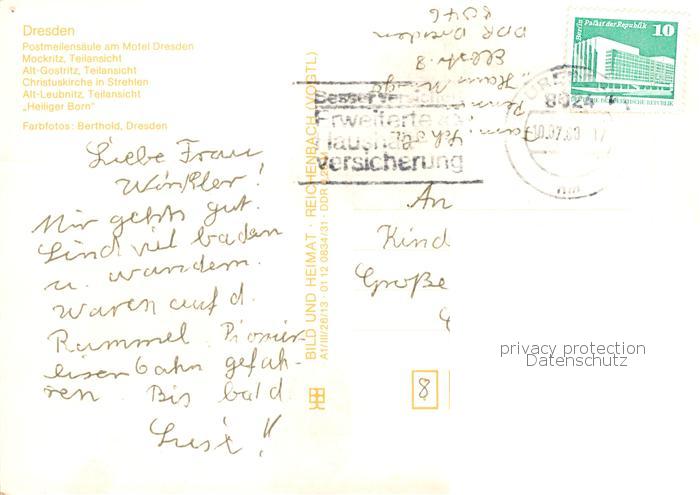 Dresden
Postmeilensäule am Motel Dresden
Mockritz, Teilansicht
Alt-Gostritz, Teilansicht
Christuskirche in Strehlen
Alt-Leubnitz, Teilansicht
„Heiliger Born"
Farbfotos: Berthold, Dresden
Liebe Frau
Winkler!
Mir gehts gut.
Sind viel baden
u. wandern.
waren auf d.
Rummel. Pionier
eisenbahn gefah-
ren. Bis bald.
Susi!!
BILD UND HEIMAT · REICHENBACH (VOGTL)
A1/III/26/13 · 01 12 0834/31 · DDR
DDR Dresden
8046
Besser
Erweiterte
Haushalt
versicherung
Berlin, Palast der Republik
10
DEUTSCHE DEMOKRATISCHE REPUBLIK
An
Kind
Große
8
privacy protection
Datenschutz